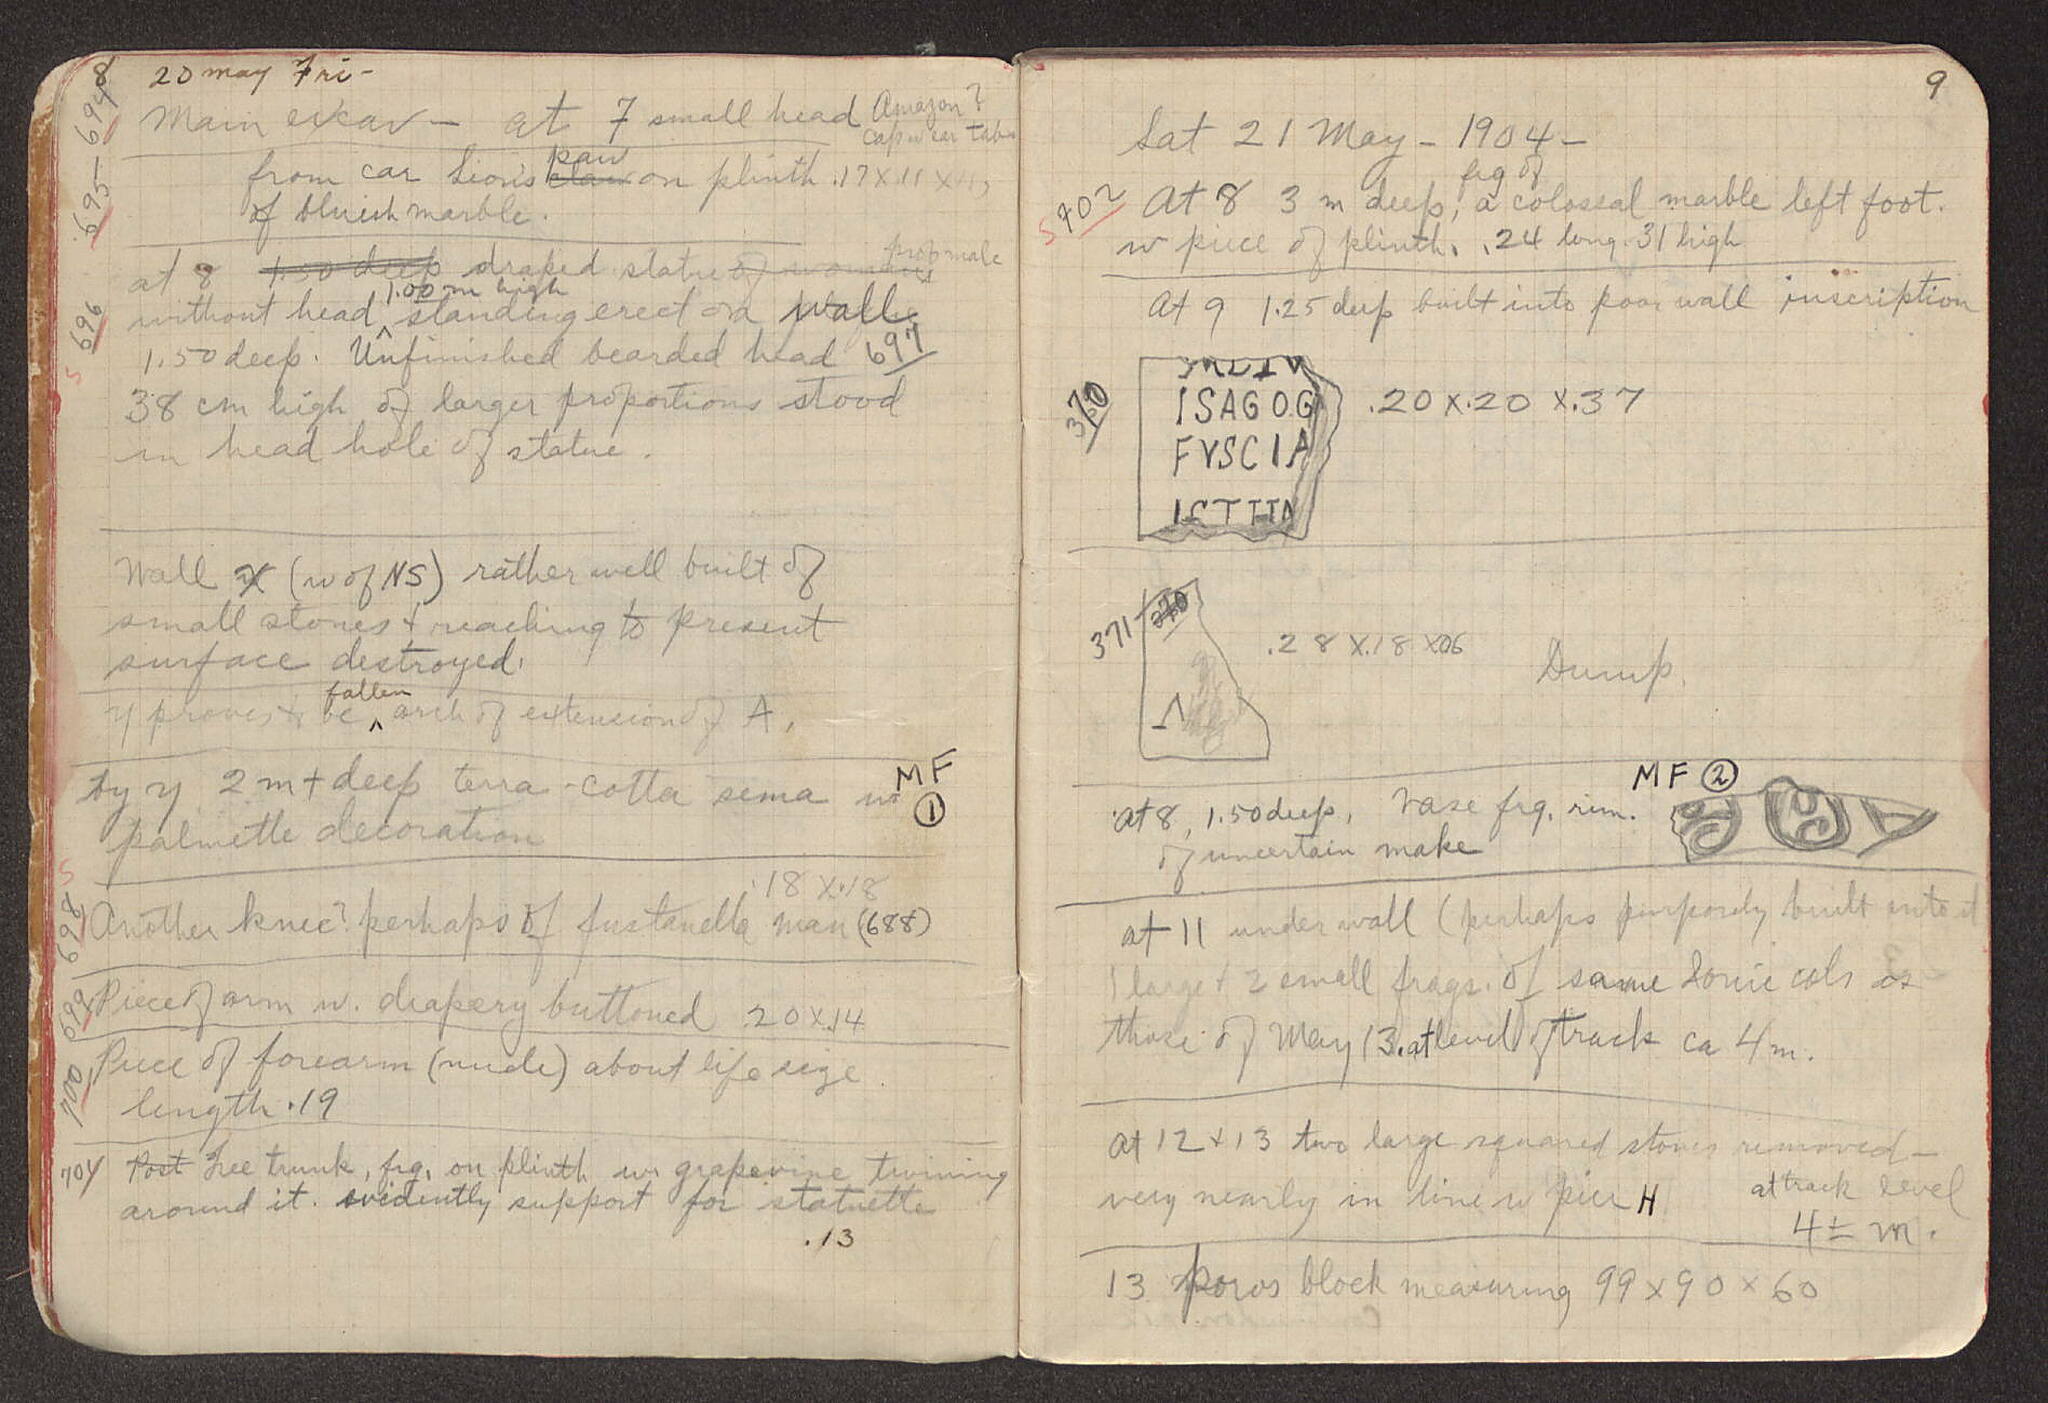 8
20 May Fri-
694
Main excav - at 7 small head Amazon?
cap w ear tabs
695
from car Lion's claw paw on plinth .17 x .11 x
of bluish marble.
at 8 1.50 deep draped statue of prob male
S 696
without head, 1.00 m high standing erect on wall
1.50 deep. Unfinished bearded head 697
38 cm high of larger proportions stood
in head hole of statue.
Wall X (w of NS) rather well built of
small stones + reaching to present
surface destroyed.
Y proves to be fallen arch of extension of A.
by Y 2 m + deep terra-cotta sema w
MF
1
palmette decoration
S 698
.18 x .18
Another knee? perhaps of fustanella man (688)
699
Piece of arm w. drapery buttoned .20 x .14
700
Piece of forearm (nude) about life size
length .19
701
Post Tree trunk, frg. on plinth w grapevine twining
around it. evidently support for statuette
.13
9
Sat 21 May - 1904 -
S 702
At 8 3 m deep, frg of a colossal marble left foot.
w piece of plinth. .24 long .31 high
At 9 1.25 deep built into poor wall inscription
370
ISAGOG
FVSCIA
.20 x .20 x .37
371 370
.28 x .18 x 06
Dump.
MF 2
at 8, 1.50 deep, Vase frg. rim.
of uncertain make
at 11 under wall (perhaps purposely built into it
1 large + 2 small frags. of same Ionic cols as
those of May 13. at level of track ca 4 m.
at 12 + 13 two large squared stones removed -
very nearly in line w pier H
at track level
4 ± m.
13 Poros block measuring 99 x 90 x 60